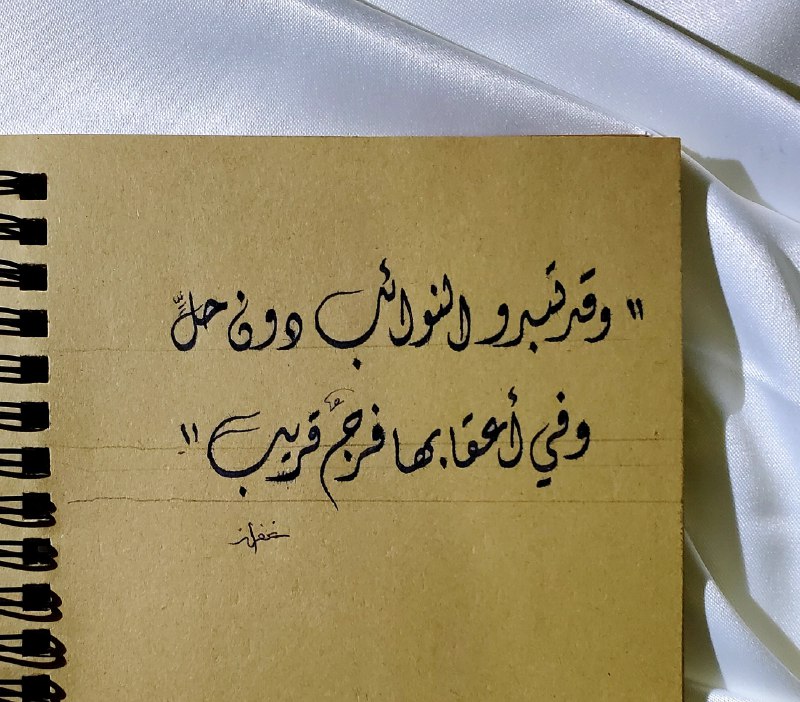 " وقد تبدو النوائب دون حلٍّ
وفي أعقابها فرجٌ قريب "
غفران